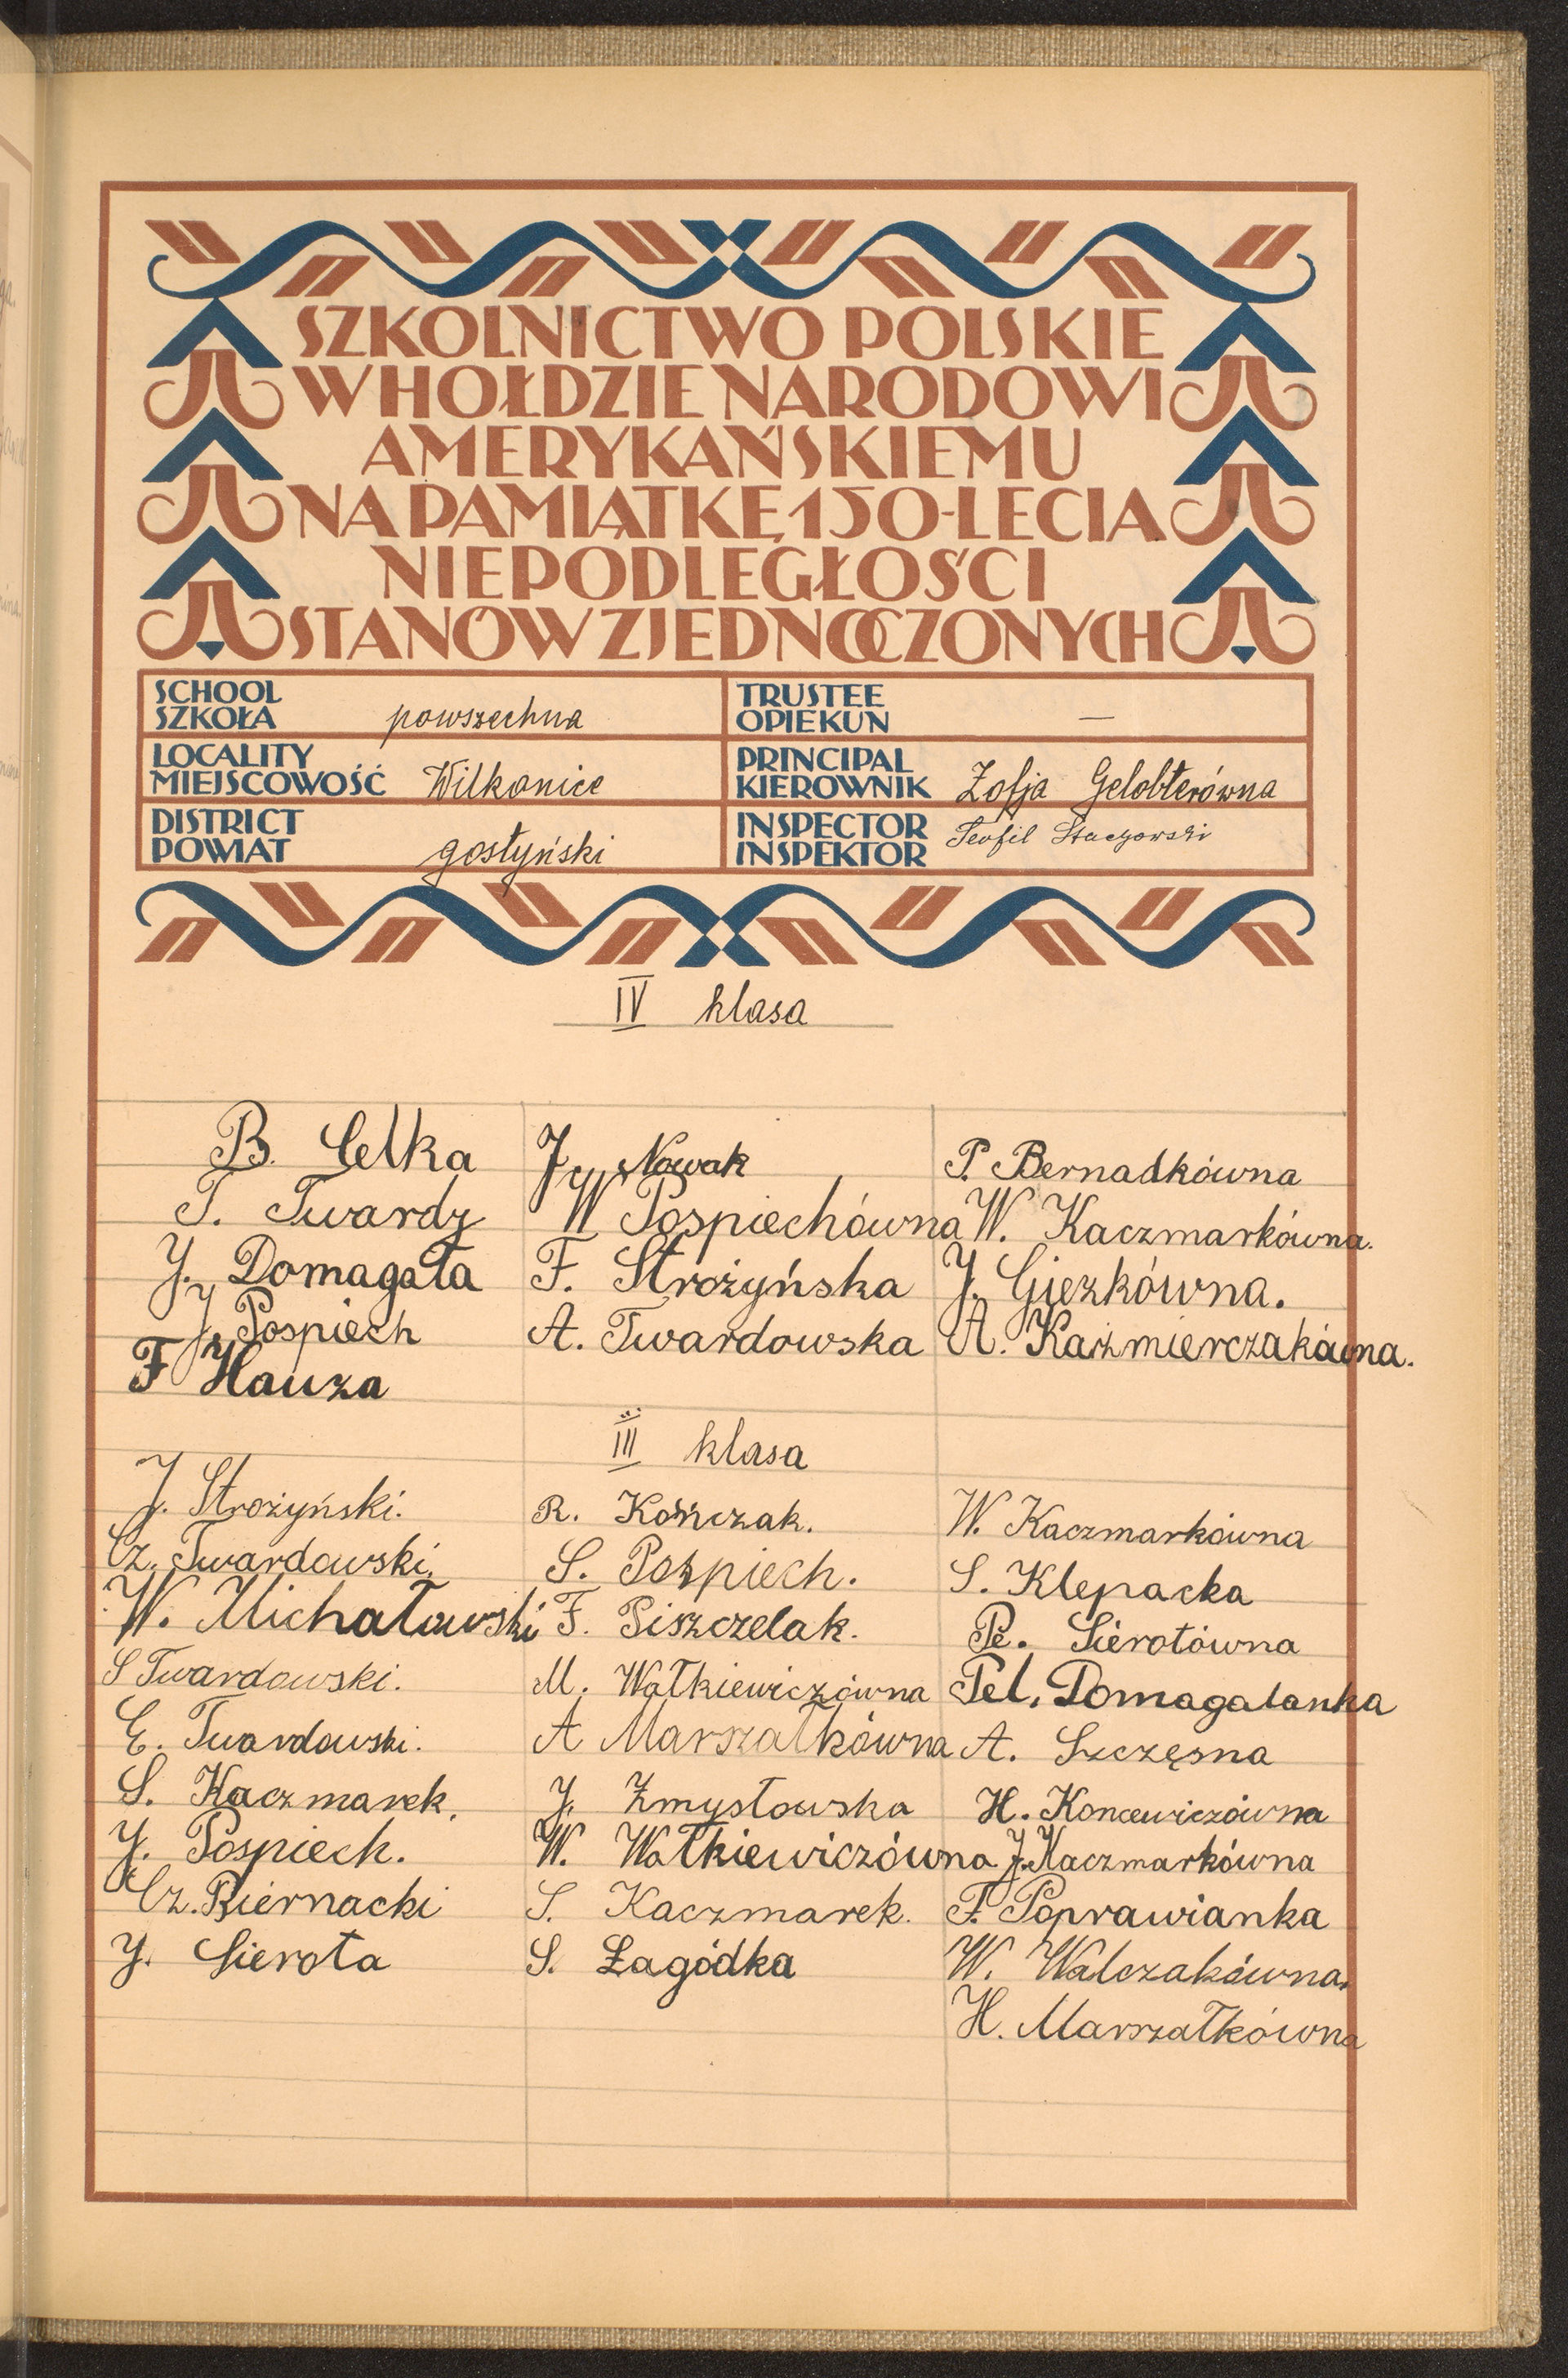 SZKOLNICTWO POLSKIE
W HOŁDZIE NARODOWI
AMERYKAŃSKIEMU
NA PAMIĄTKĘ 150-LECIA
NIEPODLEGŁOŚCI
STANÓW ZJEDNOCZONYCH
SCHOOL
SZKOŁA powszechna
TRUSTEE
OPIEKUN —
LOCALITY
MIEJSCOWOŚĆ Wilkonice
PRINCIPAL
KIEROWNIK Zofja Gelobterówna
DISTRICT
POWIAT gostyński
INSPECTOR
INSPEKTOR Teofil Staczowski
IV klasa
B. Celka
T. Twardy
J. Domagała
J. Pospiech
F Hauza
J. Nowak
W Pospiechówna
F. Strożyńska
A. Twardowska
P. Bernadkówna
W. Kaczmarkówna.
J. Giezkówna.
A. Kaźmierczakówna.
III klasa
J. Strożyński.
Cz. Twardowski.
W. Michałowski
S Twardowski.
E. Twardowski.
S. Kaczmarek.
J. Pospiech.
Cz. Biernacki
J. Sierota
R. Kończak.
S. Pospiech.
F. Piszczelak.
M. Wałkiewiczówna
A Marszałkówna
J. Zmysłowska
W. Wałkiewiczówna
S. Kaczmarek.
S. Łagódka
W. Kaczmarkówna
S. Klepacka
Pe. Sierotówna
Pel. Domagalanka
A. Szczęsna
H. Koncewiczówna
J. Kaczmarkówna
F. Poprawianka
W. Walczakówna.
H. Marszałkówna